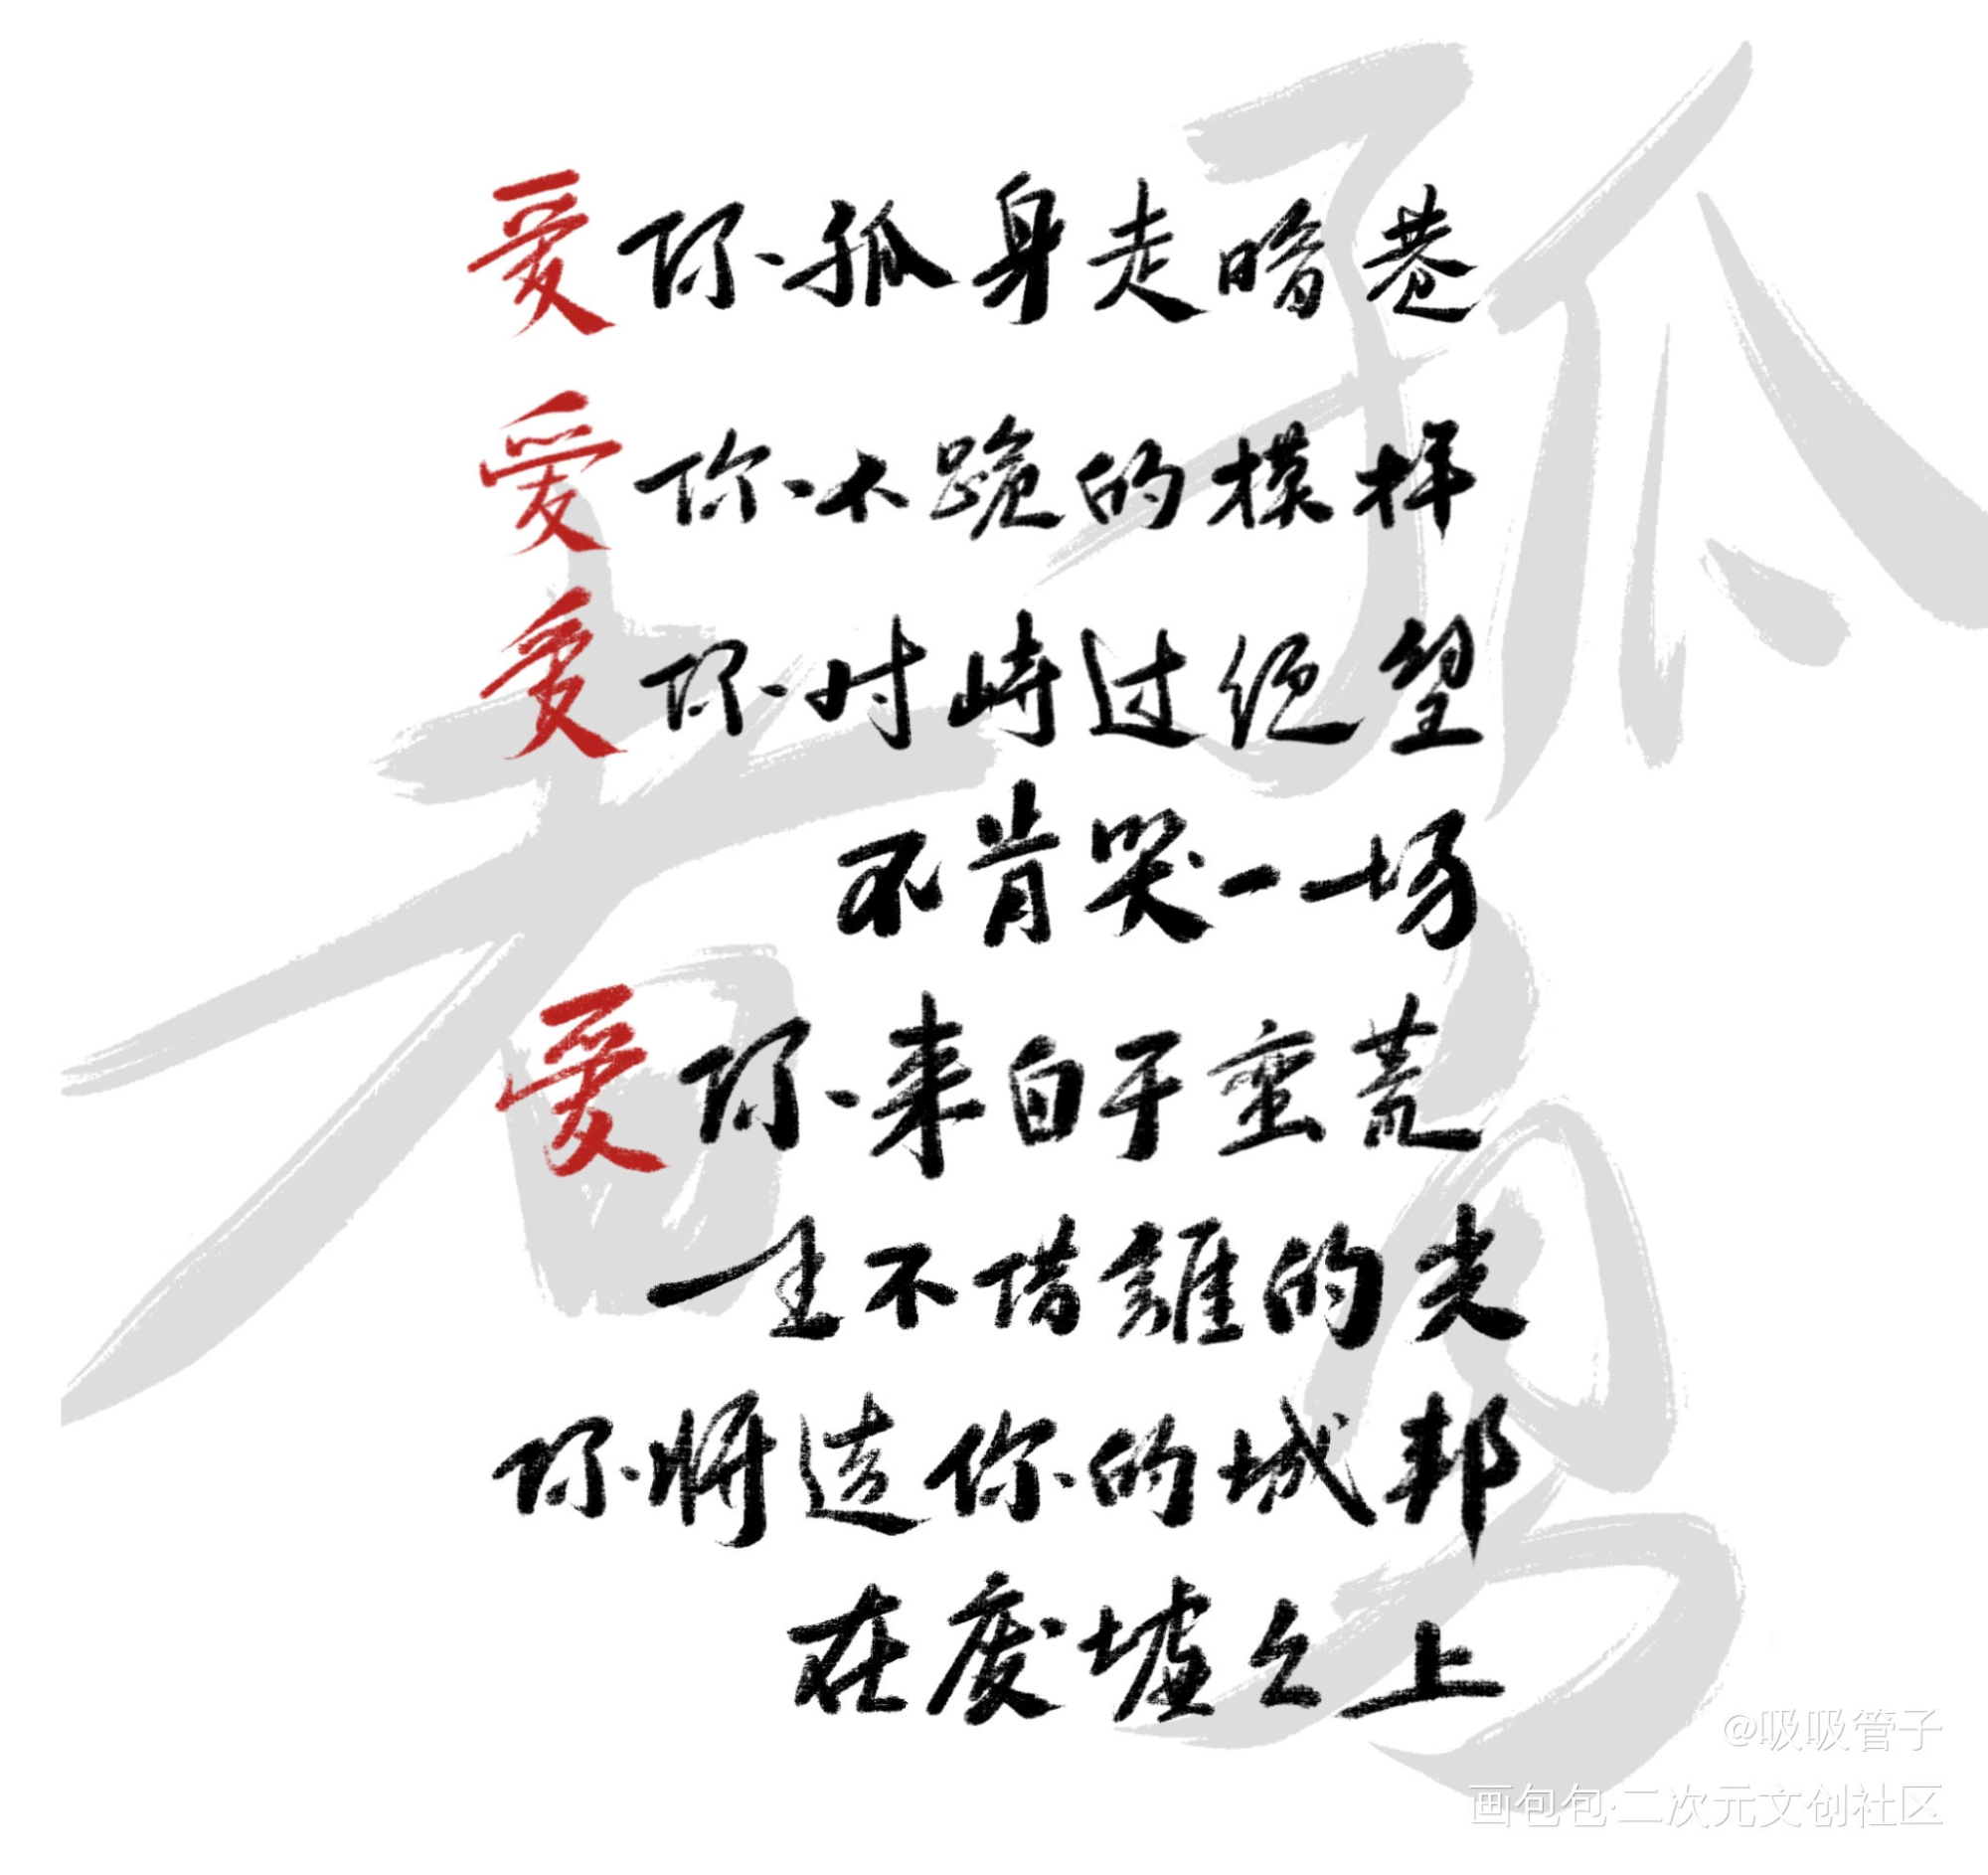 孤勇者
爱你孤身走暗巷
爱你不跪的模样
爱你对峙过绝望
不肯哭一场
爱你来自于蛮荒
一生不借誰的光
你将造你的城邦
在废墟之上
@吸吸管子
画包包·二次元文创社区